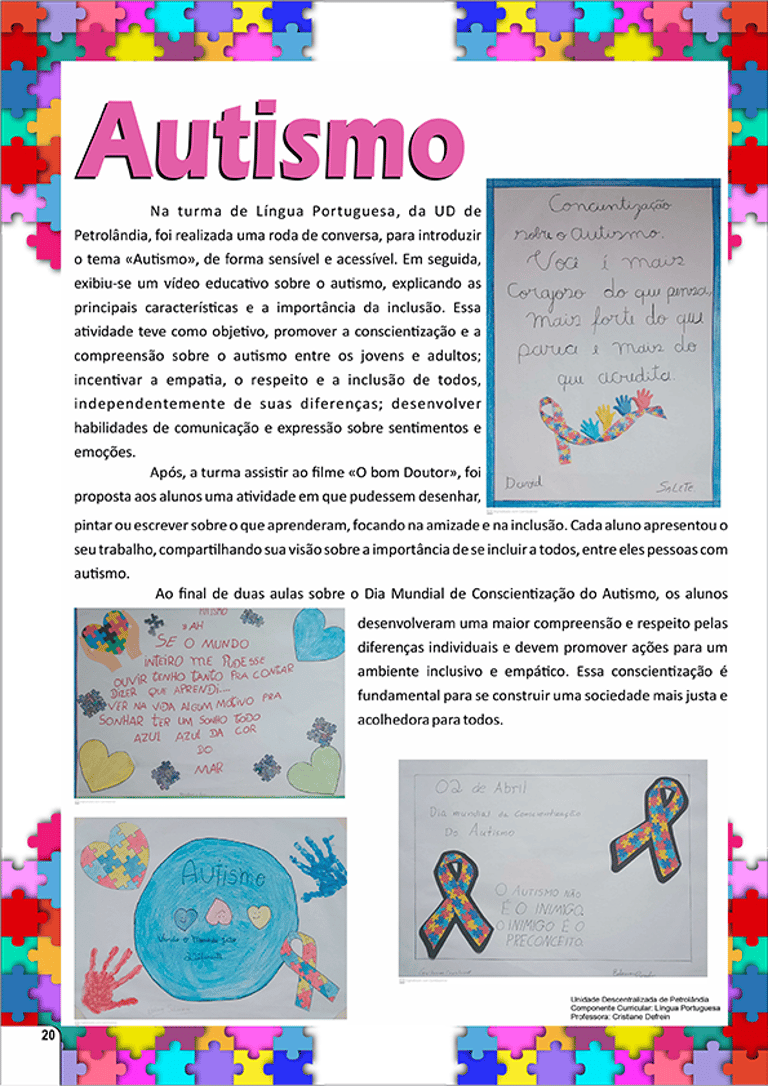 Autismo
Na turma de Língua Portuguesa, da UD de
Petrolândia, foi realizada uma roda de conversa, para introduzir
o tema «Autismo», de forma sensível e acessível. Em seguida,
exibiu-se um vídeo educativo sobre o autismo, explicando as
principais características e a importância da inclusão. Essa
atividade teve como objetivo, promover a conscientização e a
compreensão sobre o autismo entre os jovens e adultos;
incentivar a empatia, o respeito e a inclusão de todos,
independentemente de suas diferenças; desenvolver
habilidades de comunicação e expressão sobre sentimentos e
emoções.
Após, a turma assistir ao filme «O bom Doutor», foi
proposta aos alunos uma atividade em que pudessem desenhar,
pintar ou escrever sobre o que aprenderam, focando na amizade e na inclusão. Cada aluno apresentou o
seu trabalho, compartilhando sua visão sobre a importância de se incluir a todos, entre eles pessoas com
autismo.
Concientização
sobre o autismo.
Você é mais
Corajoso do que pensa,
Mais forte do que
parece e mais do
que acredita.
Salete
Ao final de duas aulas sobre o Dia Mundial de Conscientização do Autismo, os alunos
desenvolveram uma maior compreensão e respeito pelas
diferenças individuais e devem promover ações para um
ambiente inclusivo e empático. Essa conscientização é
fundamental para se construir uma sociedade mais justa e
acolhedora para todos.
AH
SE O MUNDO
INTEIRO ME PUDESSE
OUVIR TENHO TANTO PRA CONTAR
DIZER QUE APRENDI...
VER NA VIDA ALGUM MOTIVO PRA
SONHAR TER UM SONHO TODO
AZUL AZUL DA COR
DO
MAR
02 de Abril
Dia mundial da conscientização
Do Autismo
O AUTISMO NÃO
É O INIMIGO.
O INIMIGO É O
PRECONCEITO.
Autismo
o mundo
diferente
Unidade Descentralizada de Petrolândia
Componente Curricular: Língua Portuguesa
Professora: Cristiane Defrein
20